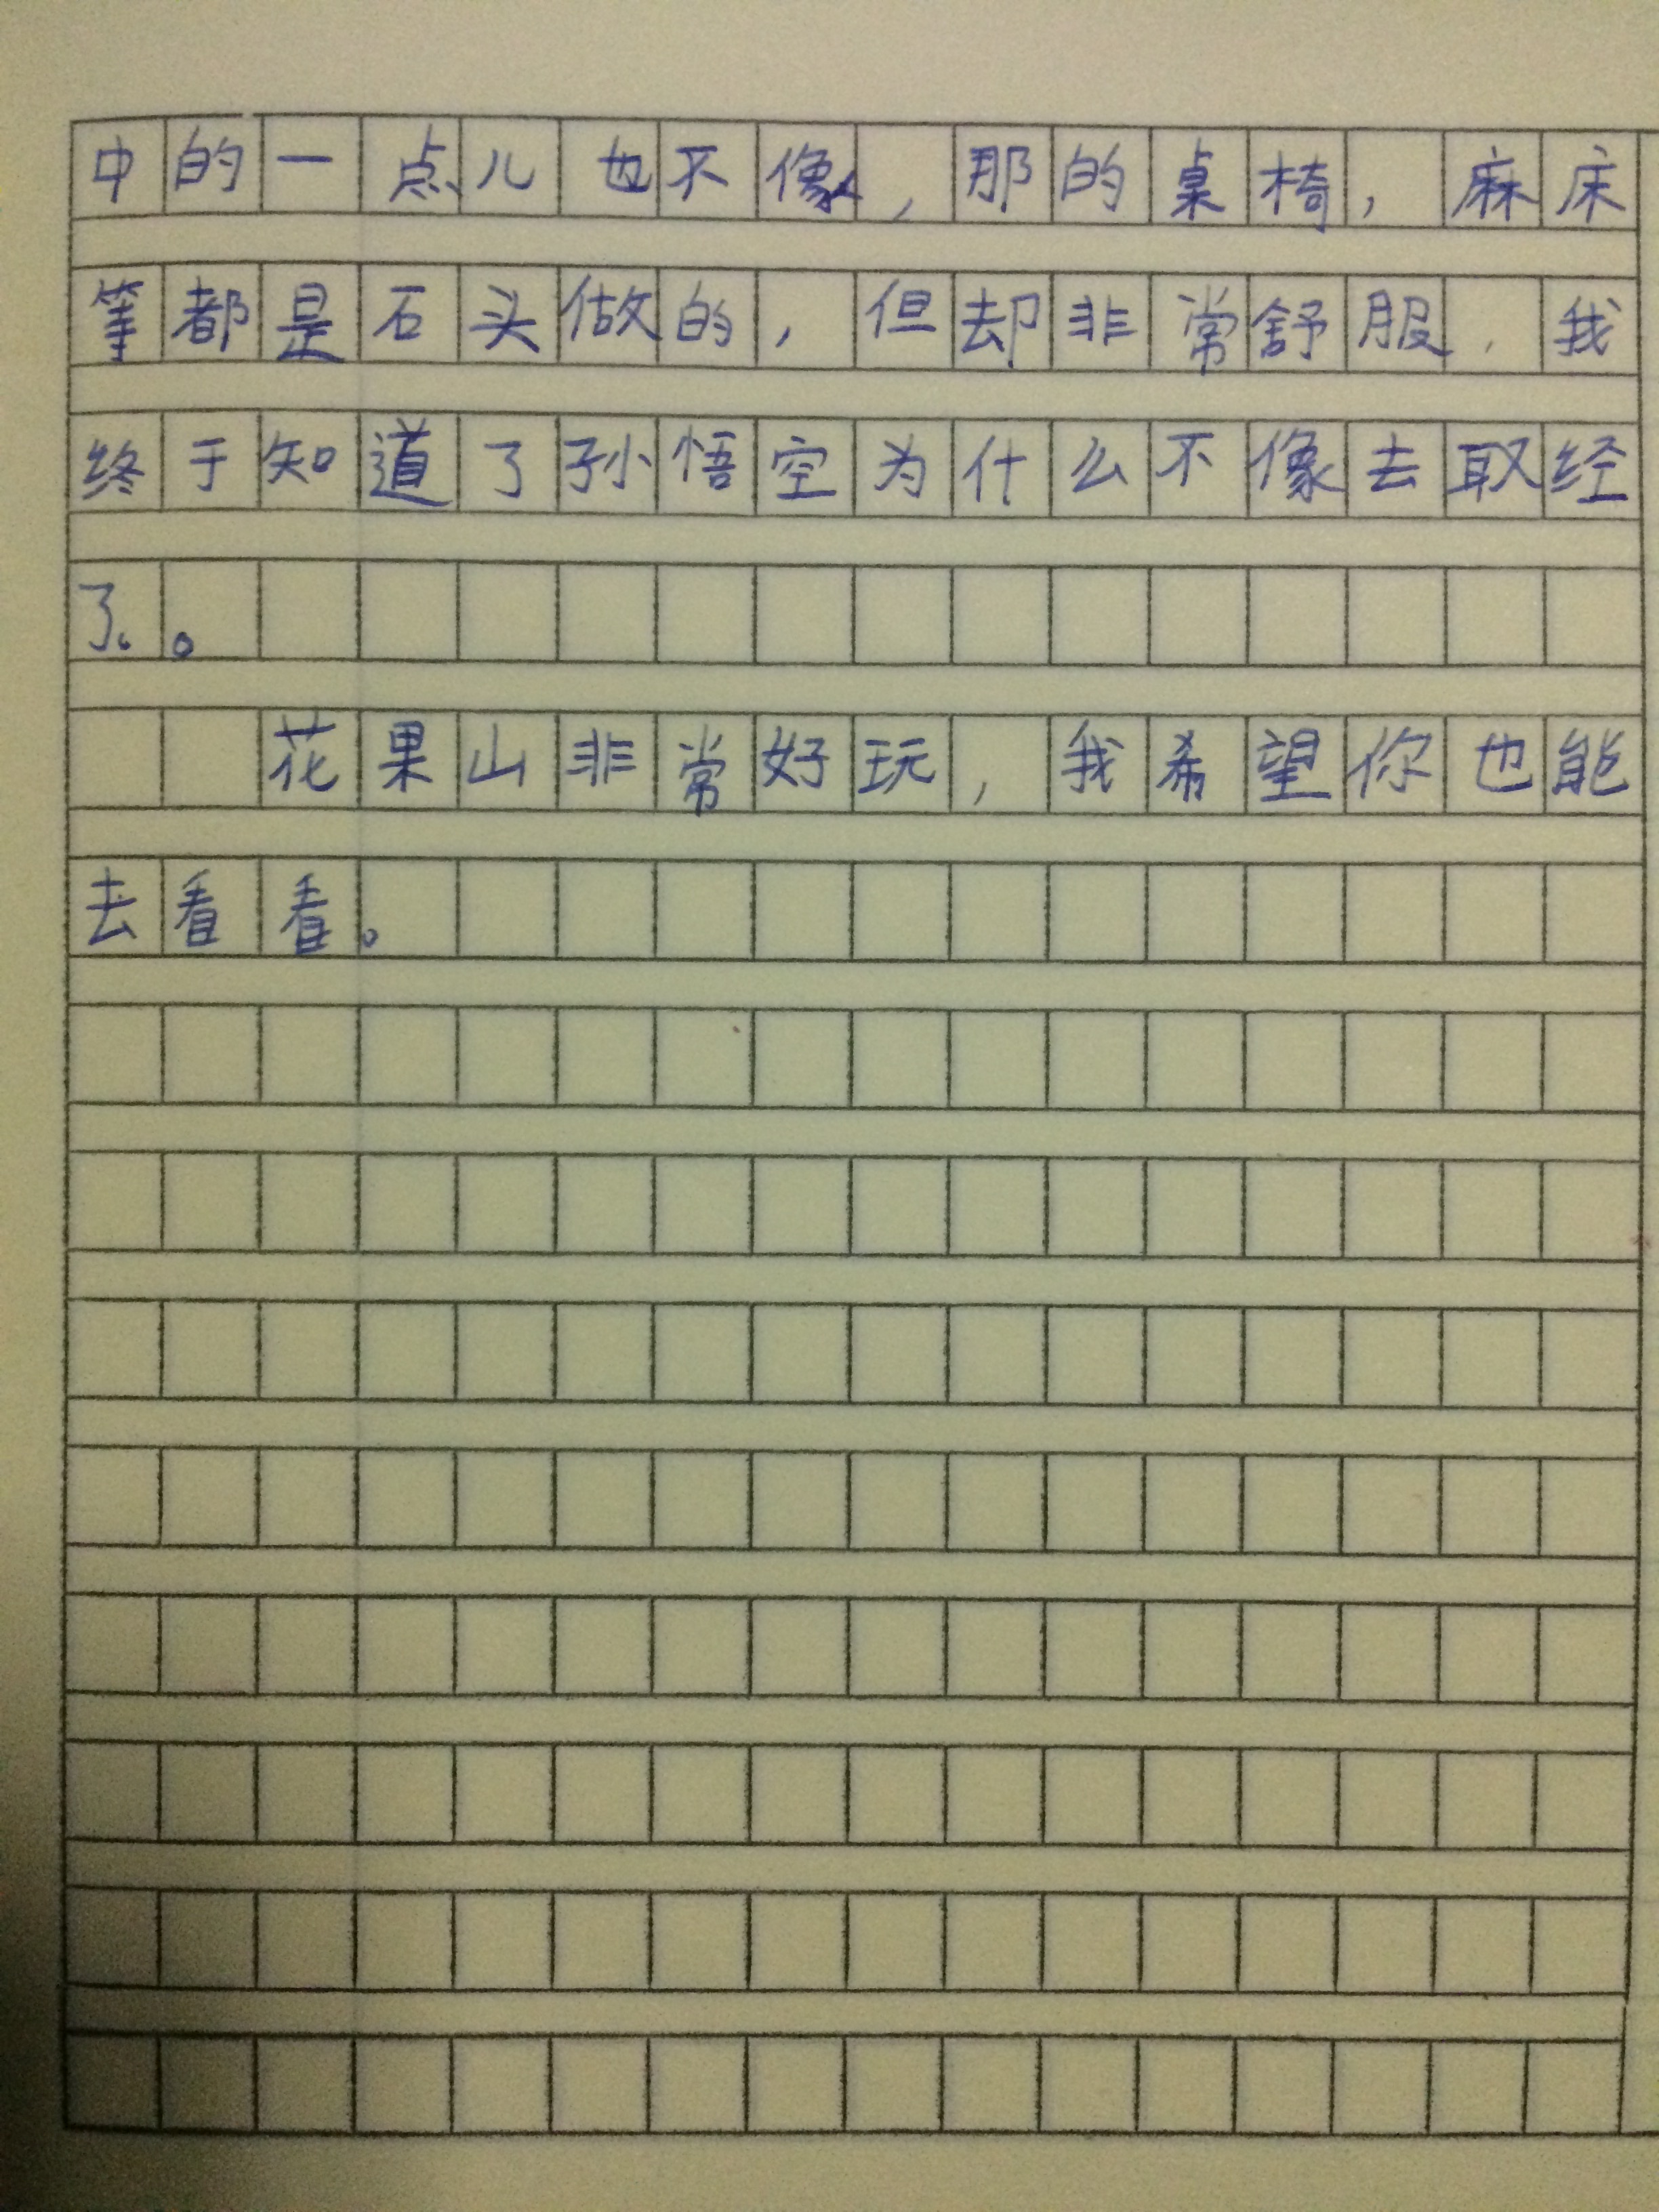 中的一点儿也不像，那的桌椅，麻床
等都是石头做的，但却非常舒服，我
终于知道了孙悟空为什么不像去取经
了。。
花果山非常好玩，我希望你也能
去看看。